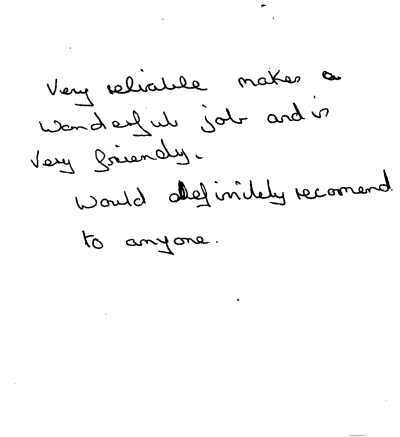 Very reliable makes a
wonderful job and is
Very friendly.
Would definitely recomend
to anyone.